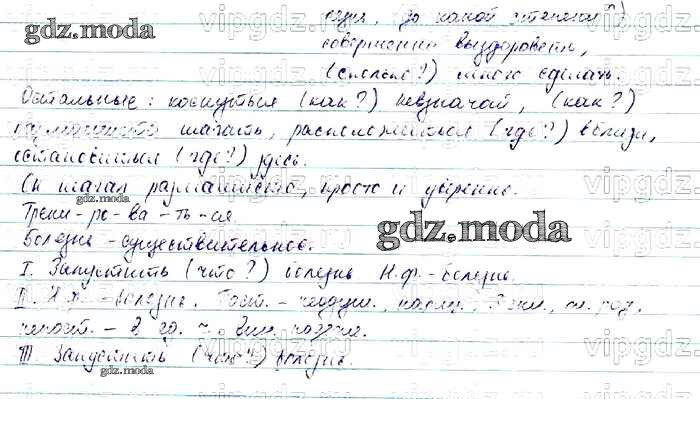 до какой степени?)
совершенно выздороветь,
(сколько?) много сделать.
Остальные: коснуться (как?) невзначай, (как?)
размашисто шагать, расположиться (где?) вблизи,
остановиться (где?) здесь.
Он шагал размашисто, просто и уверенно.
Трени-ро-ва-ть-ся
Болезнь - существительное.
I. Запустить (что?) болезнь Н.ф. - болезнь.
II. Н.ф. - болезнь. Пост. - неодуш., нариц., 3 скл., ж. род,
непост. - в ед. ч., Вин. падеже.
III. Запустить (что?) болезнь.
gdz.moda
gdz.moda
gdz.moda
gdz.moda
gdz.moda
vipgdz.ru
vipgdz